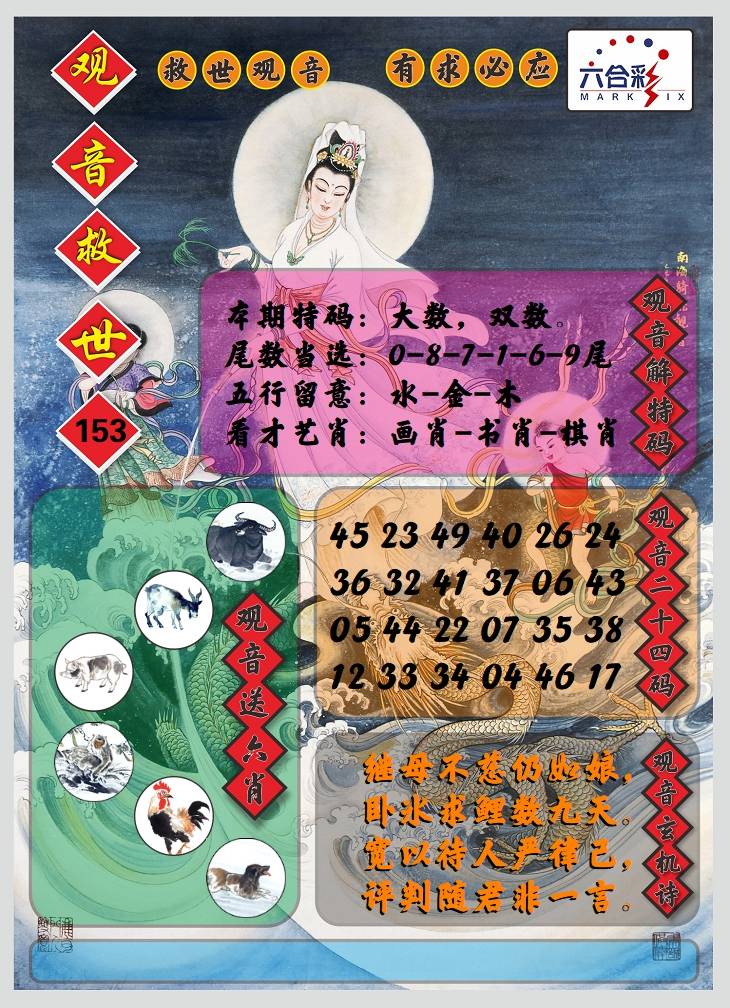 观音救世
153
救世观音 有求必应
六合彩
MARK SIX
本期特码：大数，双数。
尾数当选：0-8-7-1-6-9尾
五行留意：水-金-木
看才艺肖：画肖-书肖-棋肖
观音解特码
45 23 49 40 26 24
36 32 41 37 06 43
05 44 22 07 35 38
12 33 34 04 46 17
观音二十四码
观音送六肖
继母不慈仍如娘，
卧氷求鲤数九天。
宽以待人严律己，
评判随君非一言。
观音玄机诗